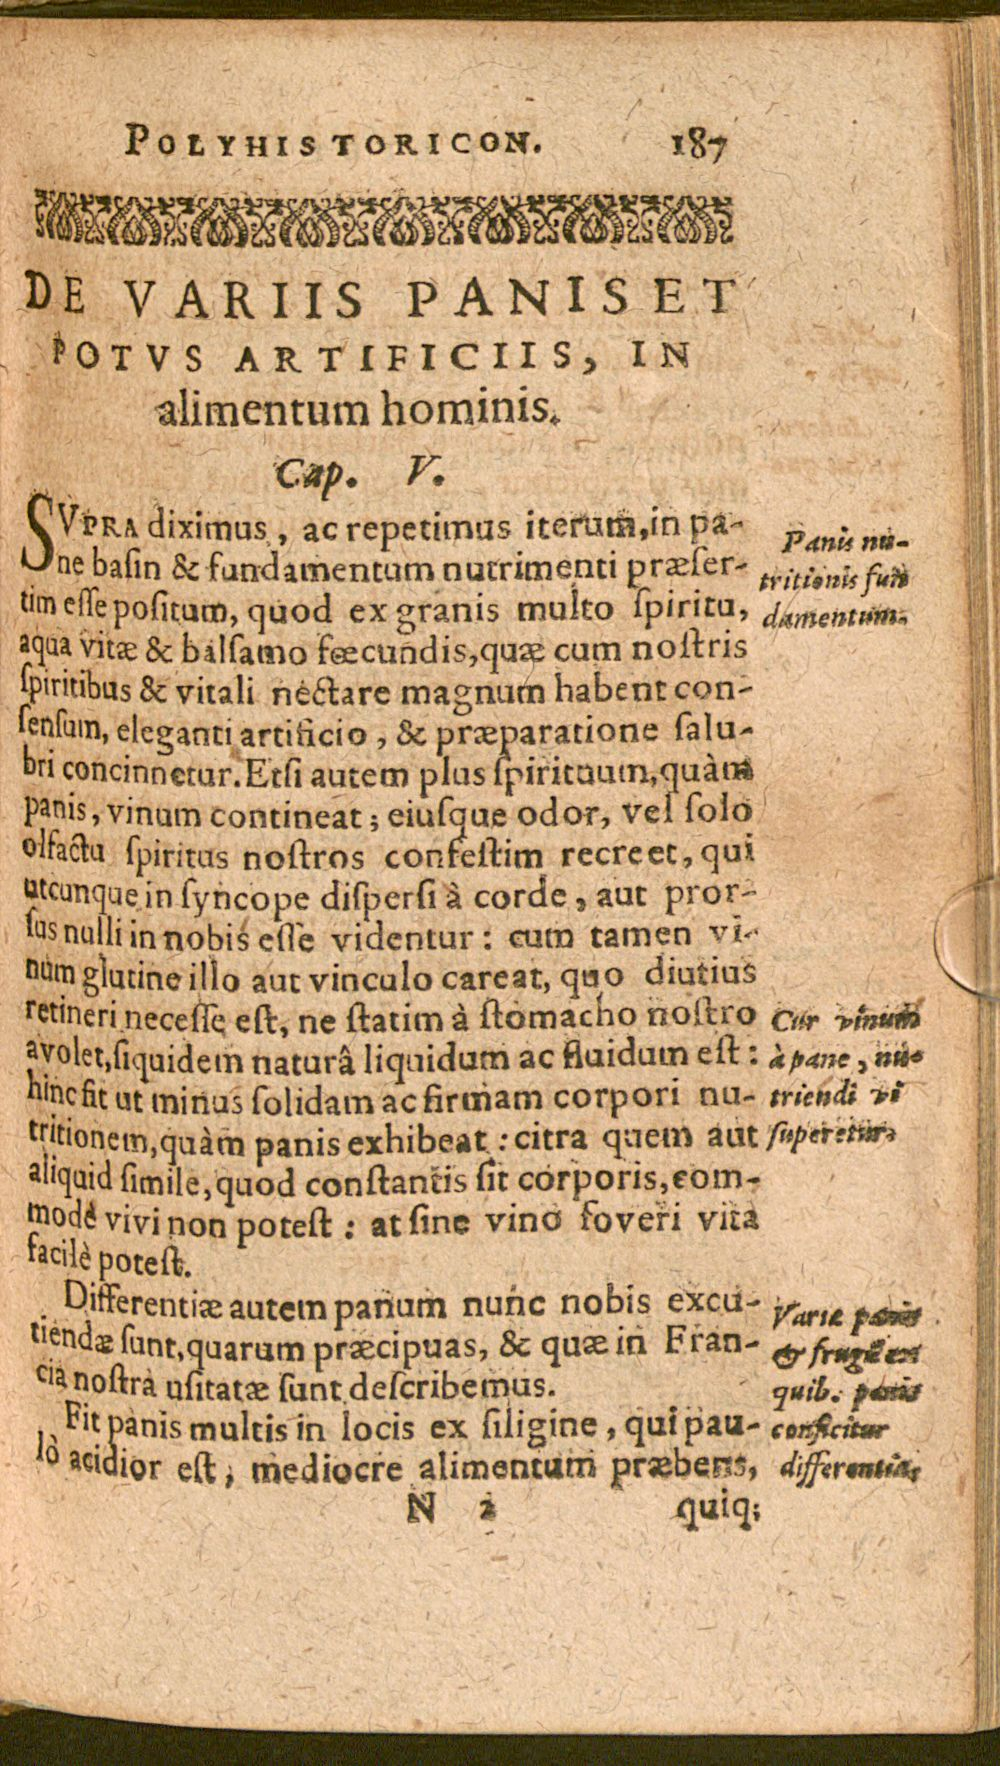 POLYHISTORICON. 187
DE VARIIS PANIS ET
POTVS ARTIFICIIS, IN
alimentum hominis.
Cap. V.
SVPRA diximus, ac repetimus iterum, in pa-
ne basin & fundamentum nutrimenti præser-
tim esse positum, quod ex granis multo spiritu,
aqua vitæ & balsamo fœcundis, quæ cum nostris
spiritibus & vitali nectare magnum habent con-
sensum, eleganti artificio, & præparatione salu-
bri concinnetur. Etsi autem plus spirituum, quàm
panis, vinum contineat; eiusque odor, vel solo
olfactu spiritus nostros confestim recreet, qui
utcunque in syncope dispersi à corde, aut pror-
sus nulli in nobis esse videntur: cum tamen vi-
num glutine illo aut vinculo careat, quo diutius
retineri necesse est, ne statim à stomacho nostro
avolet, siquidem naturâ liquidum ac fluidum est:
hinc fit ut minus solidam ac firmam corpori nu-
tritionem, quàm panis exhibeat: citra quem aut
aliquid simile, quod constantis sit corporis, com-
modè vivi non potest: at sine vino foveri vita
facilè potest.
Differentiæ autem panum nunc nobis excu-
tiendæ sunt, quarum præcipuas, & quæ in Fran-
cia nostra usitatæ sunt describemus.
Fit panis multis in locis ex siligine, qui pau-
lò acidior est, mediocre alimentum præbens,
N 2 quiq;
Panis nu-
tritionis fun
damentum.
Cur vinum
à pane, nu-
triendi vi
superetur.
Variæ panis
& frugũ ex
quib. panis
conficitur
differentiæ,